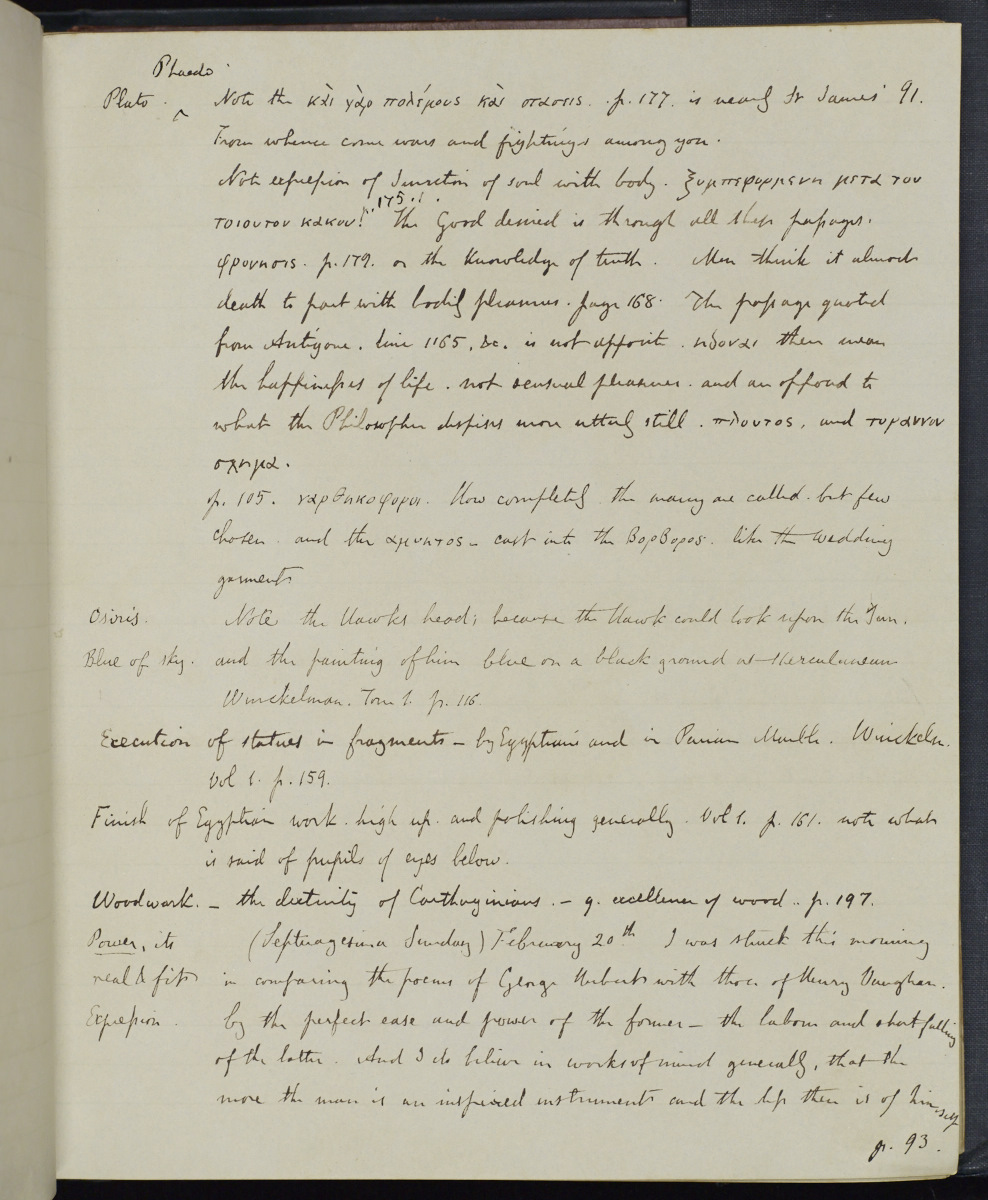 Phaedo
Plato. ^ Note the και γαρ πολεμους και στασεις. p. 177. is nearly St James' 91.
From whence come wars and fightings among you.
Note expression of Junction of soul with body. ξυμπεφυρμενη μετα του
p. 175.
τοιουτου κακου! The Good desired is through all these passages.
φρονησις. p. 179. or the knowledge of truth. Men think it almost
death to part with bodily pleasures. page 168. The passage quoted
from Antigone. line 1165, &c. is not apposite. ηδοναι there mean
the happinesses of life. not sensual pleasures. and are opposed to
what the Philosopher despises more utterly still. πλουτος, and τυραννον
σχημα.
p. 105. ναρθηκοφοροι. How completely the many are called. but few
chosen. and the αμυητος - cast into the Βορβορος. like the wedding
garment
Osiris. Note the Hawks head; because the Hawk could look upon the Sun.
Blue of sky. and the painting of him blue on a black ground at Herculaneum
Winckelman. Tom 1. p. 116.
Execution of statues in fragments - by Egyptians and in Parian Marble. Winckeln.
Vol 1. p. 159.
Finish of Egyptian work. high up. and polishing generally. Vol 1. p. 161. note what
is said of pupils of eyes below.
Woodwork. - the dexterity of Carthaginians. - q. excellence of wood.. p. 197.
Power, its (Septuagesima Sunday) February 20th I was struck this morning
real & fit in comparing the poems of George Herbert with those of Henry Vaughan.
Expression. by the perfect ease and power of the former - the labour and short falling
of the latter. And I do believe in works of mind generally, that the
more the man is an inspired instrument and the less there is of himself
p. 93.